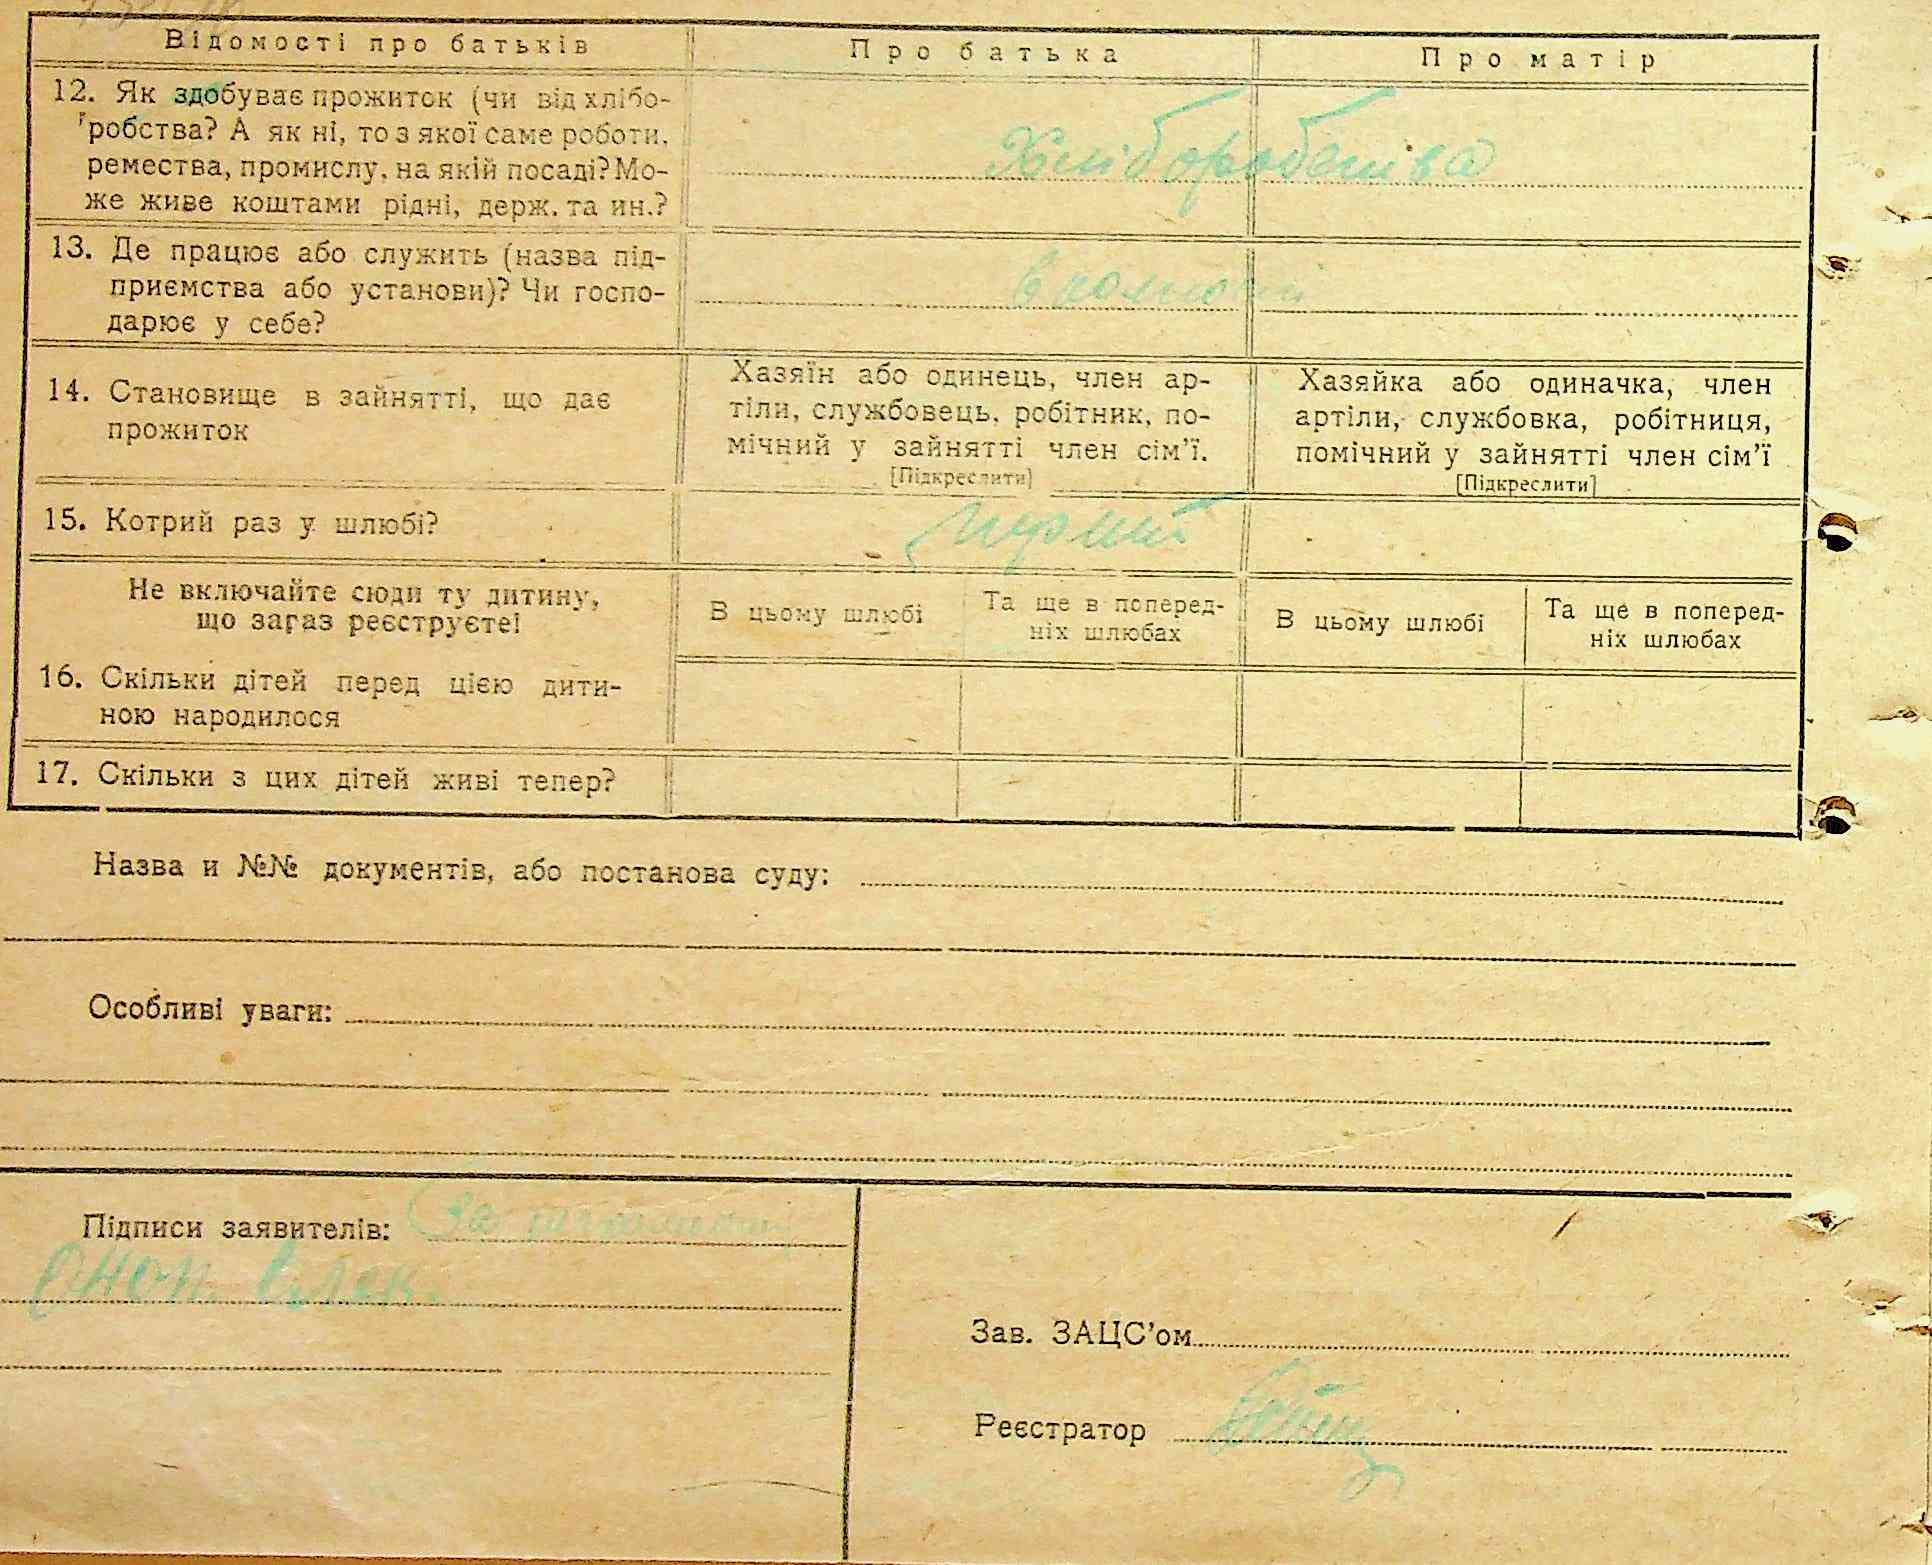 Відомості про батьків
Про батька
Про матір
12. Як здобуває прожиток (чи від хлібо-
робства? А як ні, то з якої саме роботи,
ремества, промислу, на якій посаді? Мо-
же живе коштами рідні, держ. та ин.?
Хліборобства
13. Де працює або служить (назва під-
приємства або установи)? Чи госпо-
дарює у себе?
14. Становище в зайнятті, що дає
прожиток
Хазяїн або одинець, член ар-
тіли, службовець, робітник, по-
мічний у зайнятті член сім'ї.
[Підкреслити]
Хазяйка або одиначка, член
артіли, службовка, робітниця,
помічний у зайнятті член сім'ї
[Підкреслити]
15. Котрий раз у шлюбі?
Не включайте сюди ту дитину,
що зараз реєструєте!
В цьому шлюбі
Та ще в поперед-
ніх шлюбах
В цьому шлюбі
Та ще в поперед-
ніх шлюбах
16. Скільки дітей перед цією дити-
ною народилося
17. Скільки з цих дітей живі тепер?
Назва и №№ документів, або постанова суду:
Особливі уваги:
Підписи заявителів: За
Зав. ЗАЦС'ом
Реєстратор